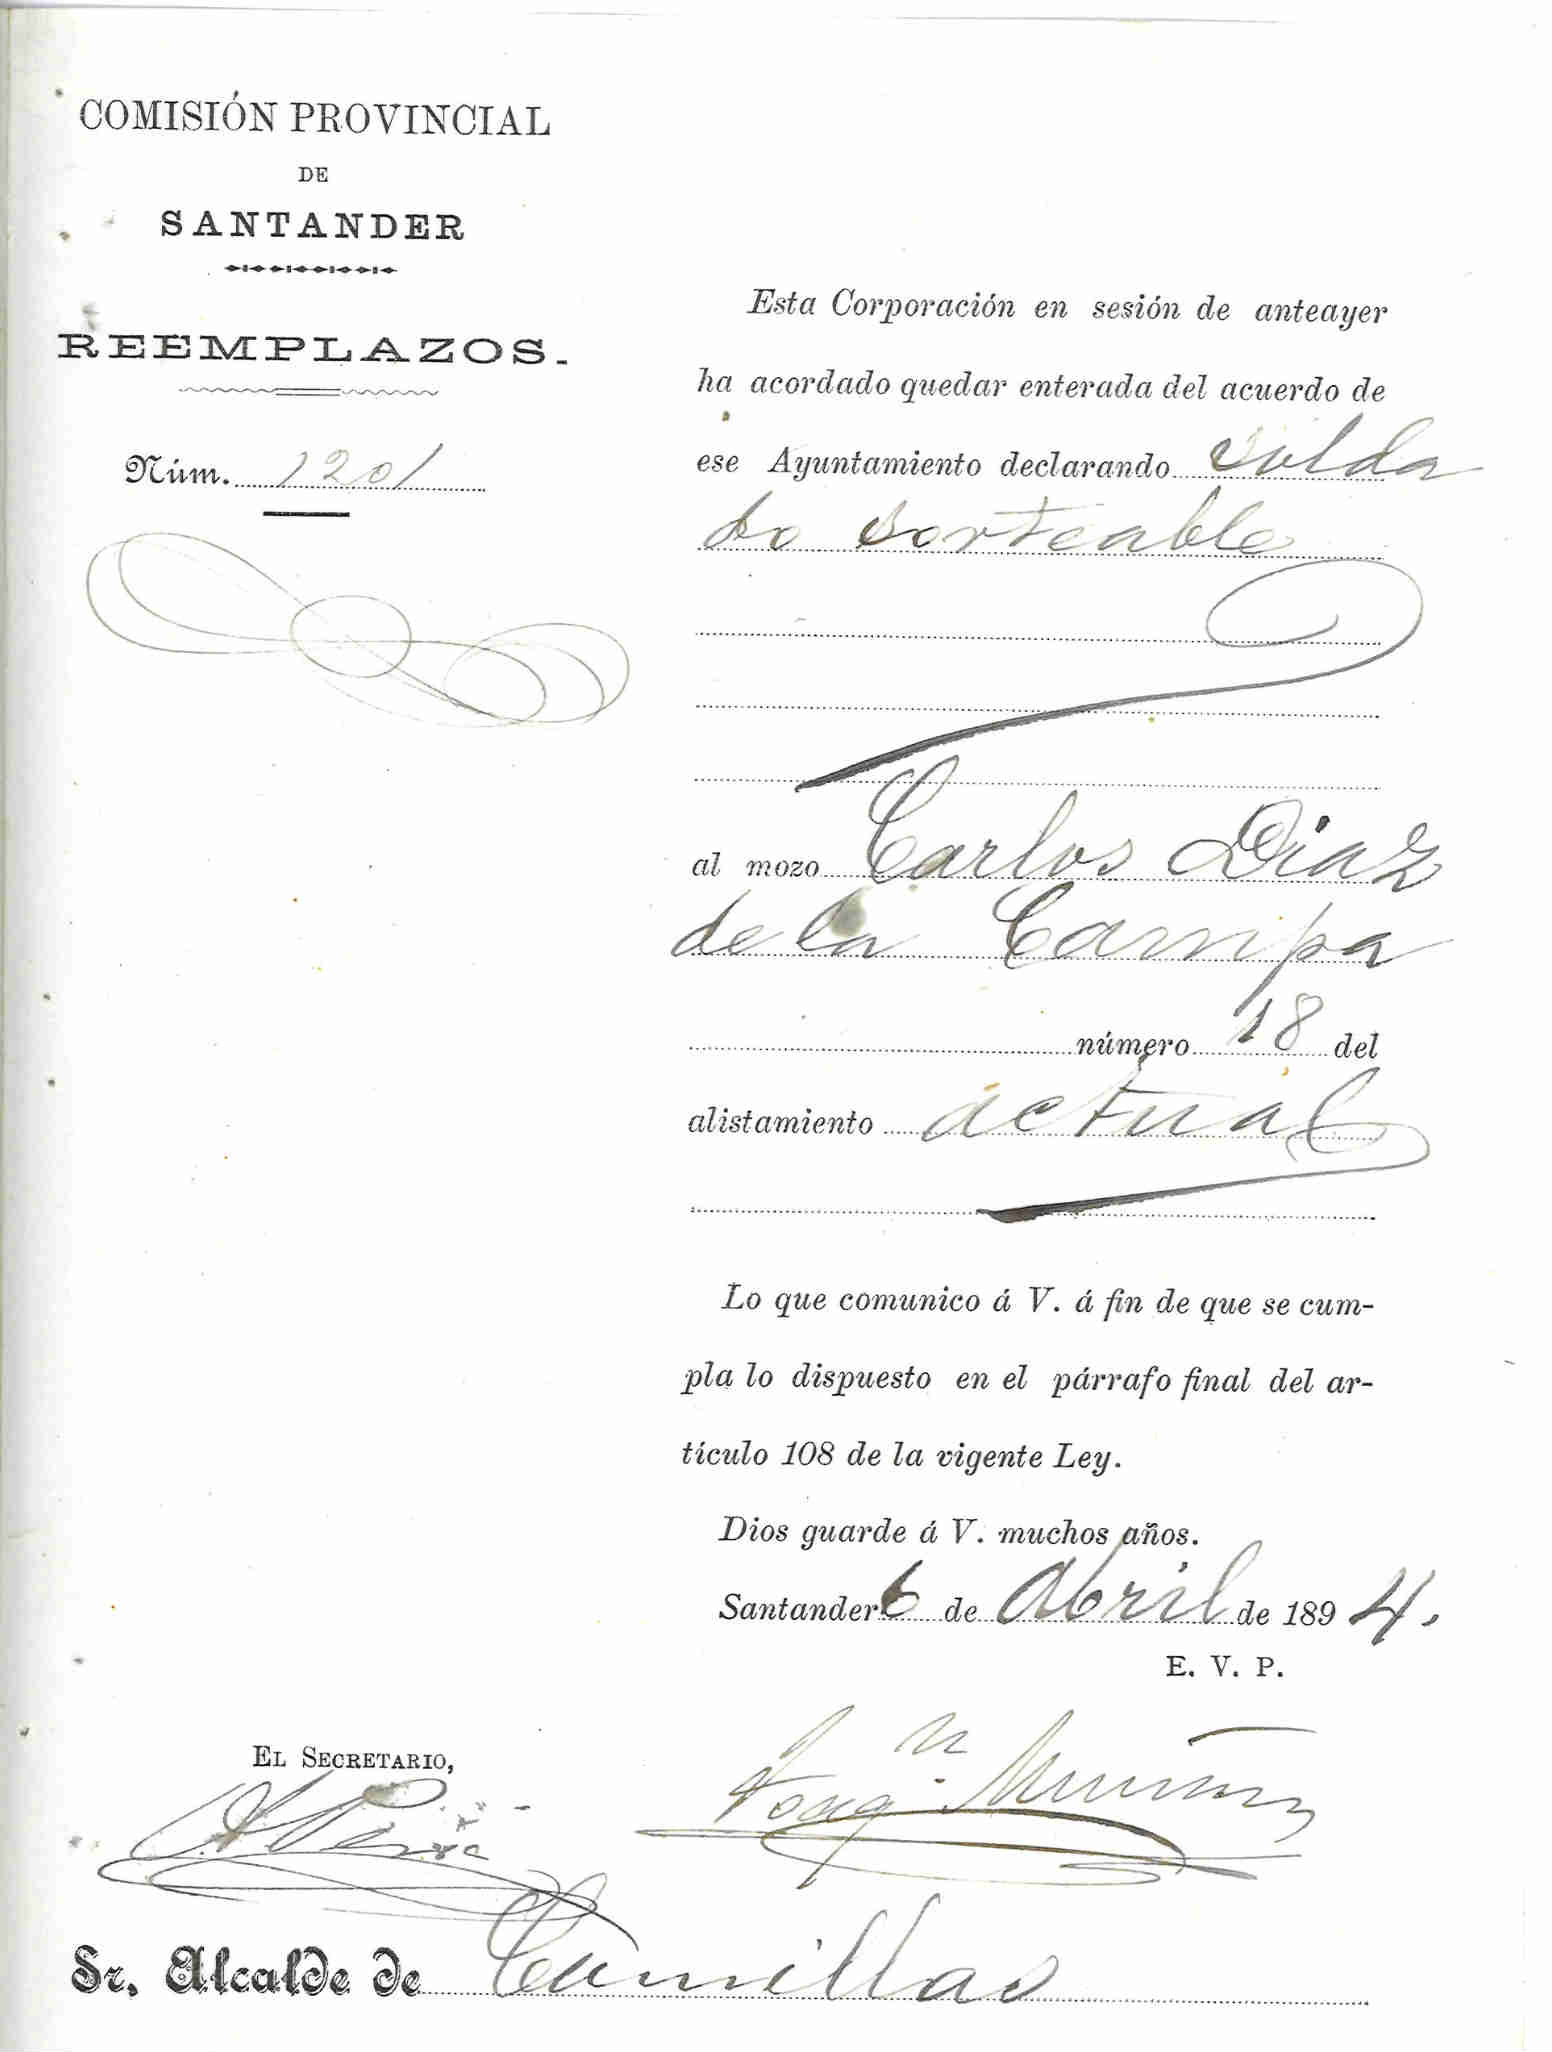 COMISIÓN PROVINCIAL
DE
SANTANDER
REEMPLAZOS.
Núm. 1201
Esta Corporación en sesión de anteayer
ha acordado quedar enterada del acuerdo de
ese Ayuntamiento declarando solda
do sorteable
al mozo Carlos Diaz
de la Campa
número 18 del
alistamiento actual
Lo que comunico á V. á fin de que se cum-
pla lo dispuesto en el párrafo final del ar-
tículo 108 de la vigente Ley.
Dios guarde á V. muchos años.
Santander 6 de Abril de 1894.
E. V. P.
EL SECRETARIO,
Sr. Alcalde de Comillas